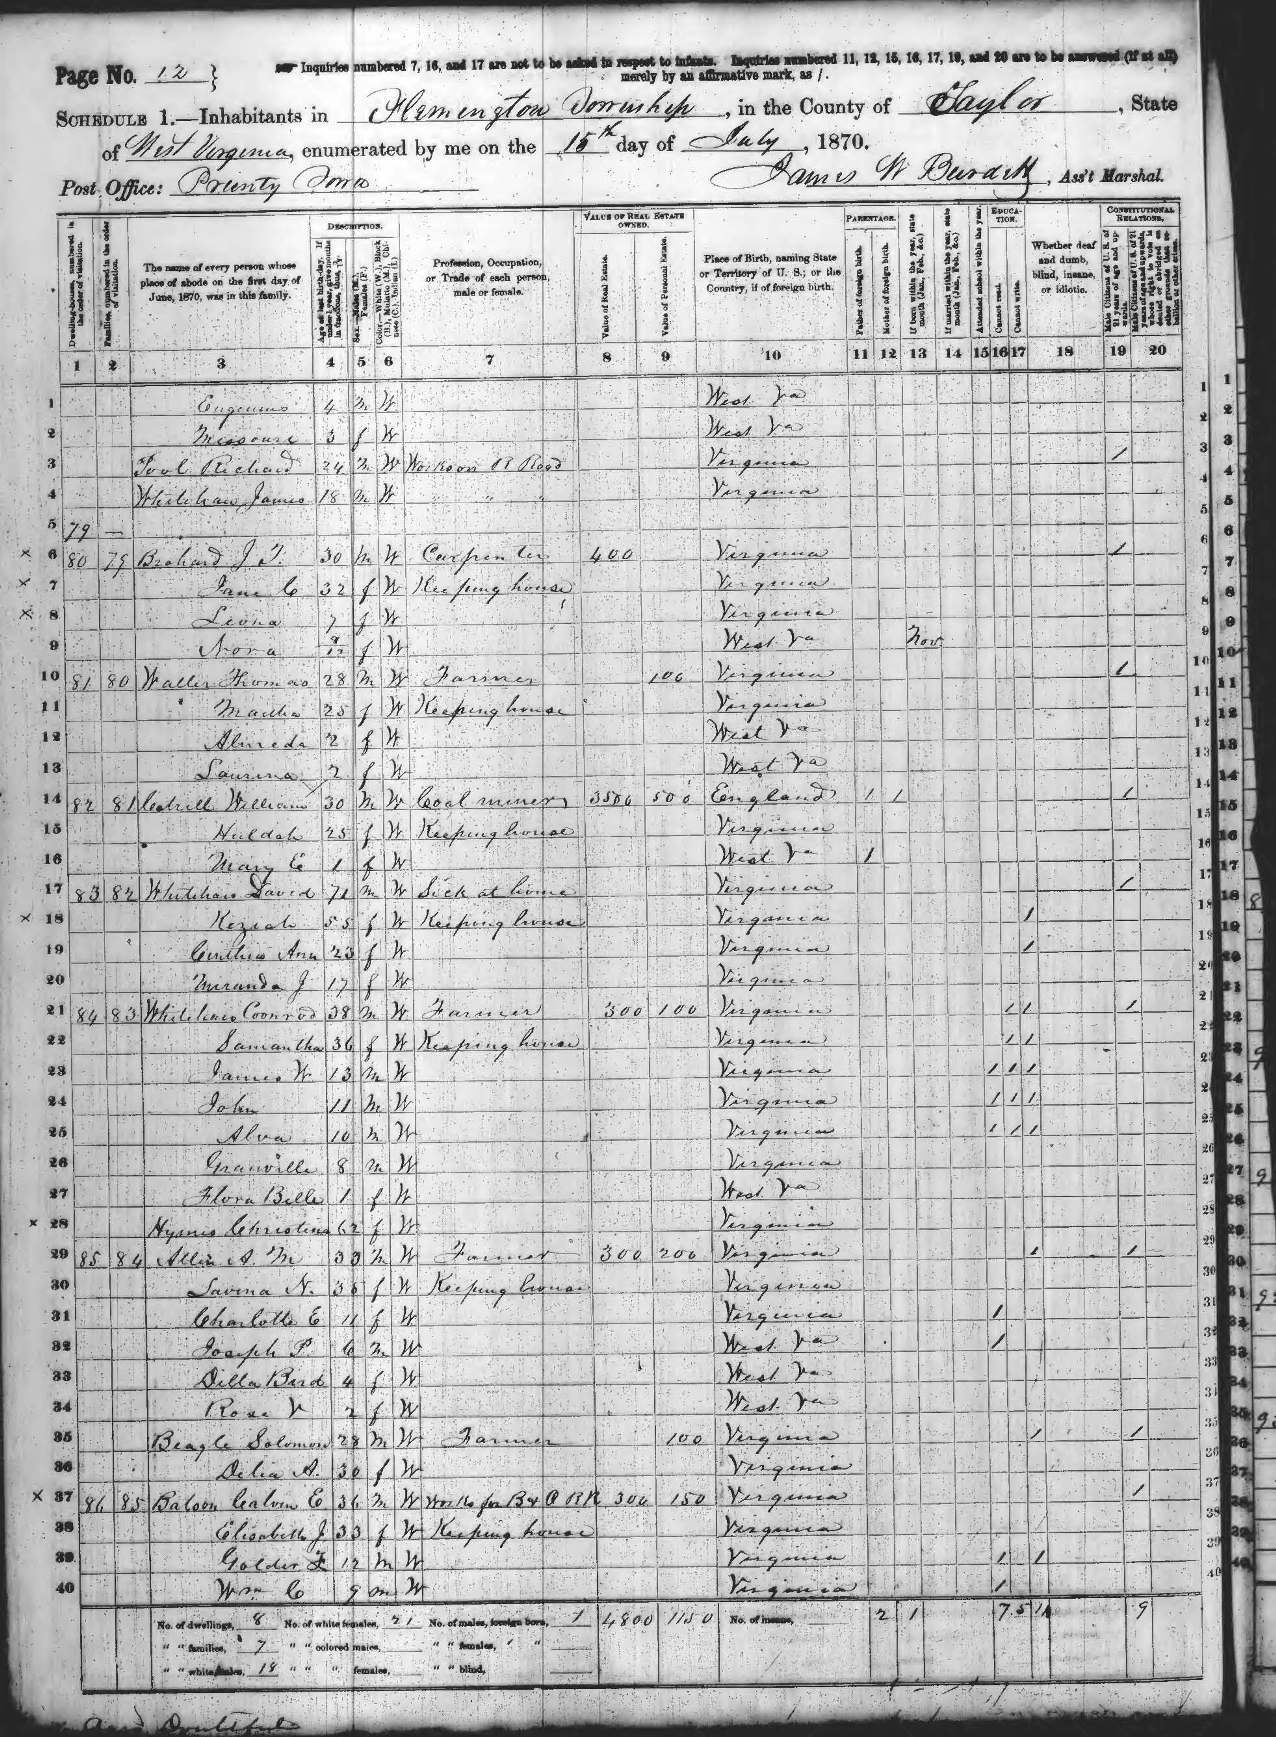 Page No. 12
Inquiries numbered 7, 16, and 17 are not to be asked in respect to infants. Inquiries numbered 11, 12, 15, 16, 17, 19, and 20 are to be answered (if at all)
merely by an affirmative mark, as /.
SCHEDULE 1.—Inhabitants in Flemington Township, in the County of Taylor, State
of West Virginia, enumerated by me on the 15th day of July, 1870.
Post Office: Prunty Town James W Burdett, Ass't Marshal.
DESCRIPTION. VALUE OF REAL ESTATE OWNED. PARENTAGE. EDUCATION. CONSTITUTIONAL RELATIONS.
Dwelling-houses, numbered in the order of visitation.
Families, numbered in the order of visitation.
The name of every person whose place of abode on the first day of June, 1870, was in this family.
Age at last birth-day. If under 1 year, give months in fractions, thus, 3/12
Sex.—Males (M.), Females (F.)
Color.—White (W.), Black (B.), Mulatto (M.), Chinese (C.), Indian (I.)
Profession, Occupation, or Trade of each person, male or female.
Value of Real Estate.
Value of Personal Estate.
Place of Birth, naming State or Territory of U. S.; or the Country, if of foreign birth.
Father of foreign birth.
Mother of foreign birth.
If born within the year, state month (Jan., Feb., &c.)
If married within the year, state month (Jan., Feb., &c.)
Attended school within the year.
Cannot read.
Cannot write.
Whether deaf and dumb, blind, insane, or idiotic.
Male Citizens of U. S. of 21 years of age and upwards.
Male Citizens of U. S. of 21 years of age and upwards, whose right to vote is denied or abridged on other grounds than rebellion or other crime.
1 2 3 4 5 6 7 8 9 10 11 12 13 14 15 16 17 18 19 20
1 Eugenius 4 m W West Va
2 Missouri 3 f W West Va
3 Pool Richard 24 m W Works on R Road Virginia /
4 Whitehair James 18 m W " " " Virginia
5 79 —
6 80 79 J. T. 30 m W Carpenter 400 Virginia /
7 Jane C 32 f W Keeping house Virginia
8 Leona 7 f W Virginia
9 Nora f W West Va Nov
10 81 80 Waller Thomas 28 m W Farmer 100 Virginia /
11 Martha 25 f W Keeping house Virginia
12 Almeda 2 f W West Va
13 Laurina 2 f W West Va
14 82 81 William 30 m W Coal miner 3500 500 England / / /
15 Huldah 25 f W Keeping house Virginia
16 Mary E 1 f W West Va /
17 83 82 Whitehair David 71 m W Sick at home Virginia /
18 Keziah 55 f W Keeping house Virginia /
19 Ann 23 f W Virginia /
20 Miranda J 17 f W Virginia
21 84 83 Whitehair Coonrod 38 m W Farmer 300 100 Virginia / / /
22 Samantha 36 f W Keeping house Virginia / /
23 James W 13 m W Virginia / / /
24 John 11 m W Virginia / / /
25 Alva 10 m W Virginia / / /
26 Granville 8 m W Virginia
27 Flora Belle 1 f W West Va
28 Christina 62 f W Virginia
29 85 84 Allen A. M 33 m W Farmer 300 200 Virginia / /
30 Lavina N. 35 f W Keeping house Virginia
31 Charlotte E 11 f W Virginia /
32 Joseph P. 6 m W West Va /
33 Della Bird 4 f W West Va
34 Rose V 2 f W West Va
35 Beagle Solomon 28 m W Farmer 100 Virginia / /
36 Delia A. 30 f W Virginia
37 86 85 Batson Calvin E 36 m W Works for B & O RR 300 150 Virginia /
38 Elisabeth J 33 f W Keeping house Virginia
39 Golder 12 m W Virginia / /
40 Wm C 9 m W Virginia /
No. of dwellings, 8 No. of white females, 21 No. of males, foreign born, 1 4800 1150 No. of insane, 2 1 7 5 11 9
" " families, 7 " " colored males, " " females, " "
" " white males, 18 " " " females, " " blind,